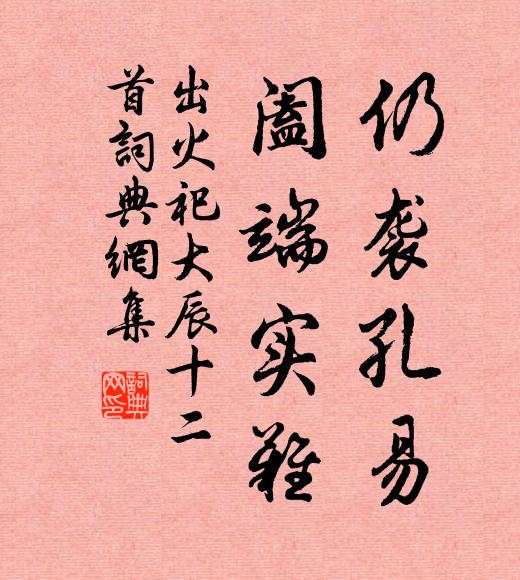 仍袭孔易
阖端实难
出火祀大辰十二
首詞典網集
詞典网印